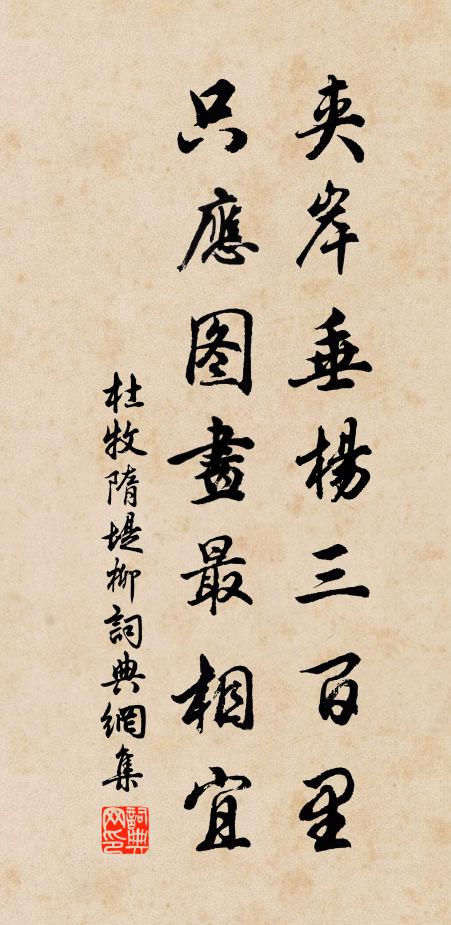 夹岸垂楊三百里
只應图畫最相宜
杜牧隋堤柳詞典網集
詞典网印